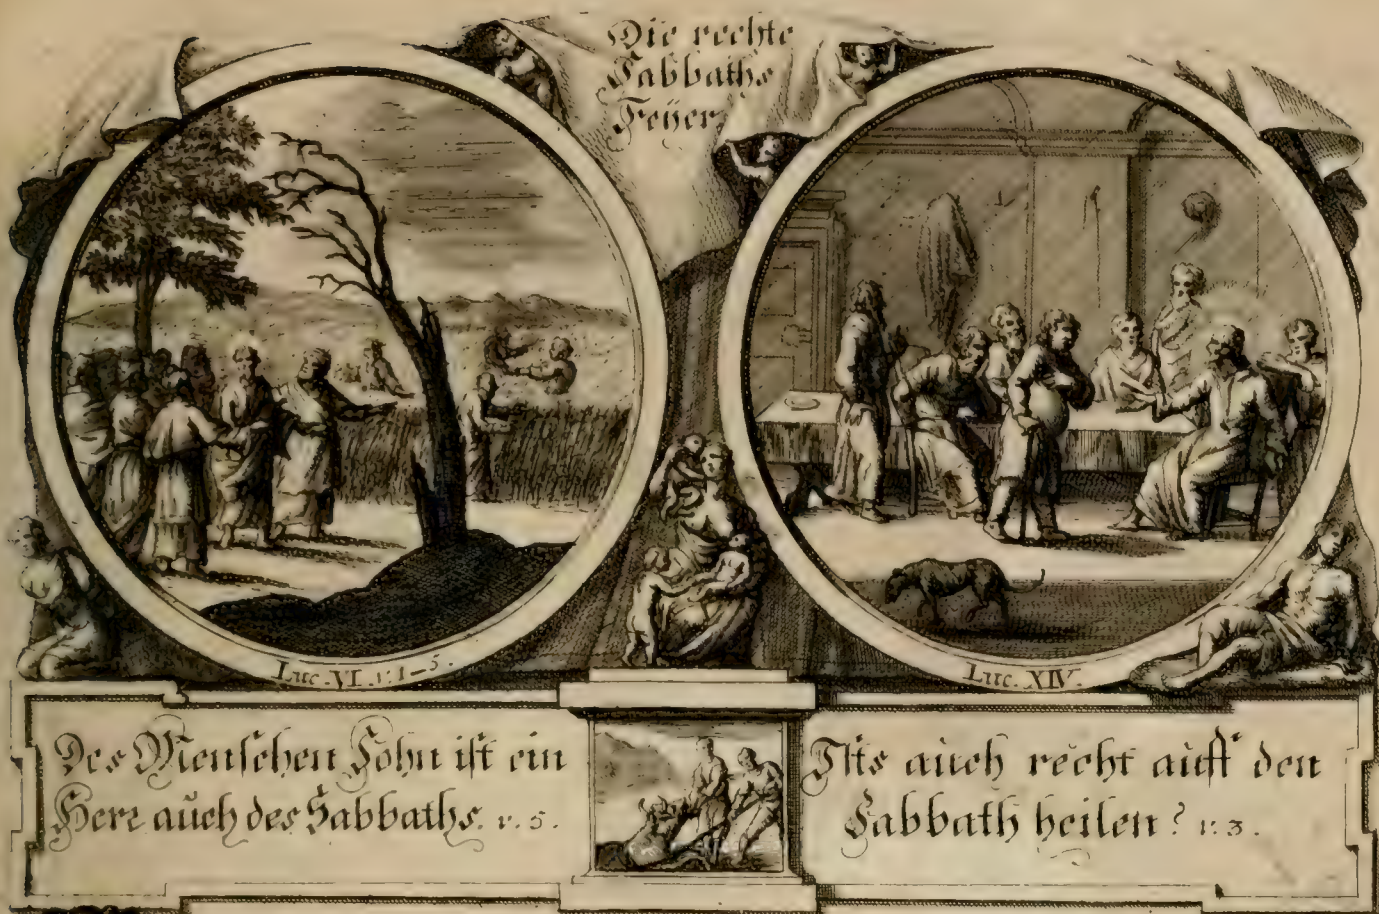 Die rechte
Sabbaths
Feyer
Luc. VI. v. 1–5.
Luc. XIV.
Des Menschen Sohn ist ein
Herr auch des Sabbaths. v. 5.
Ists auch recht auff den
Sabbath heilen? v. 3.